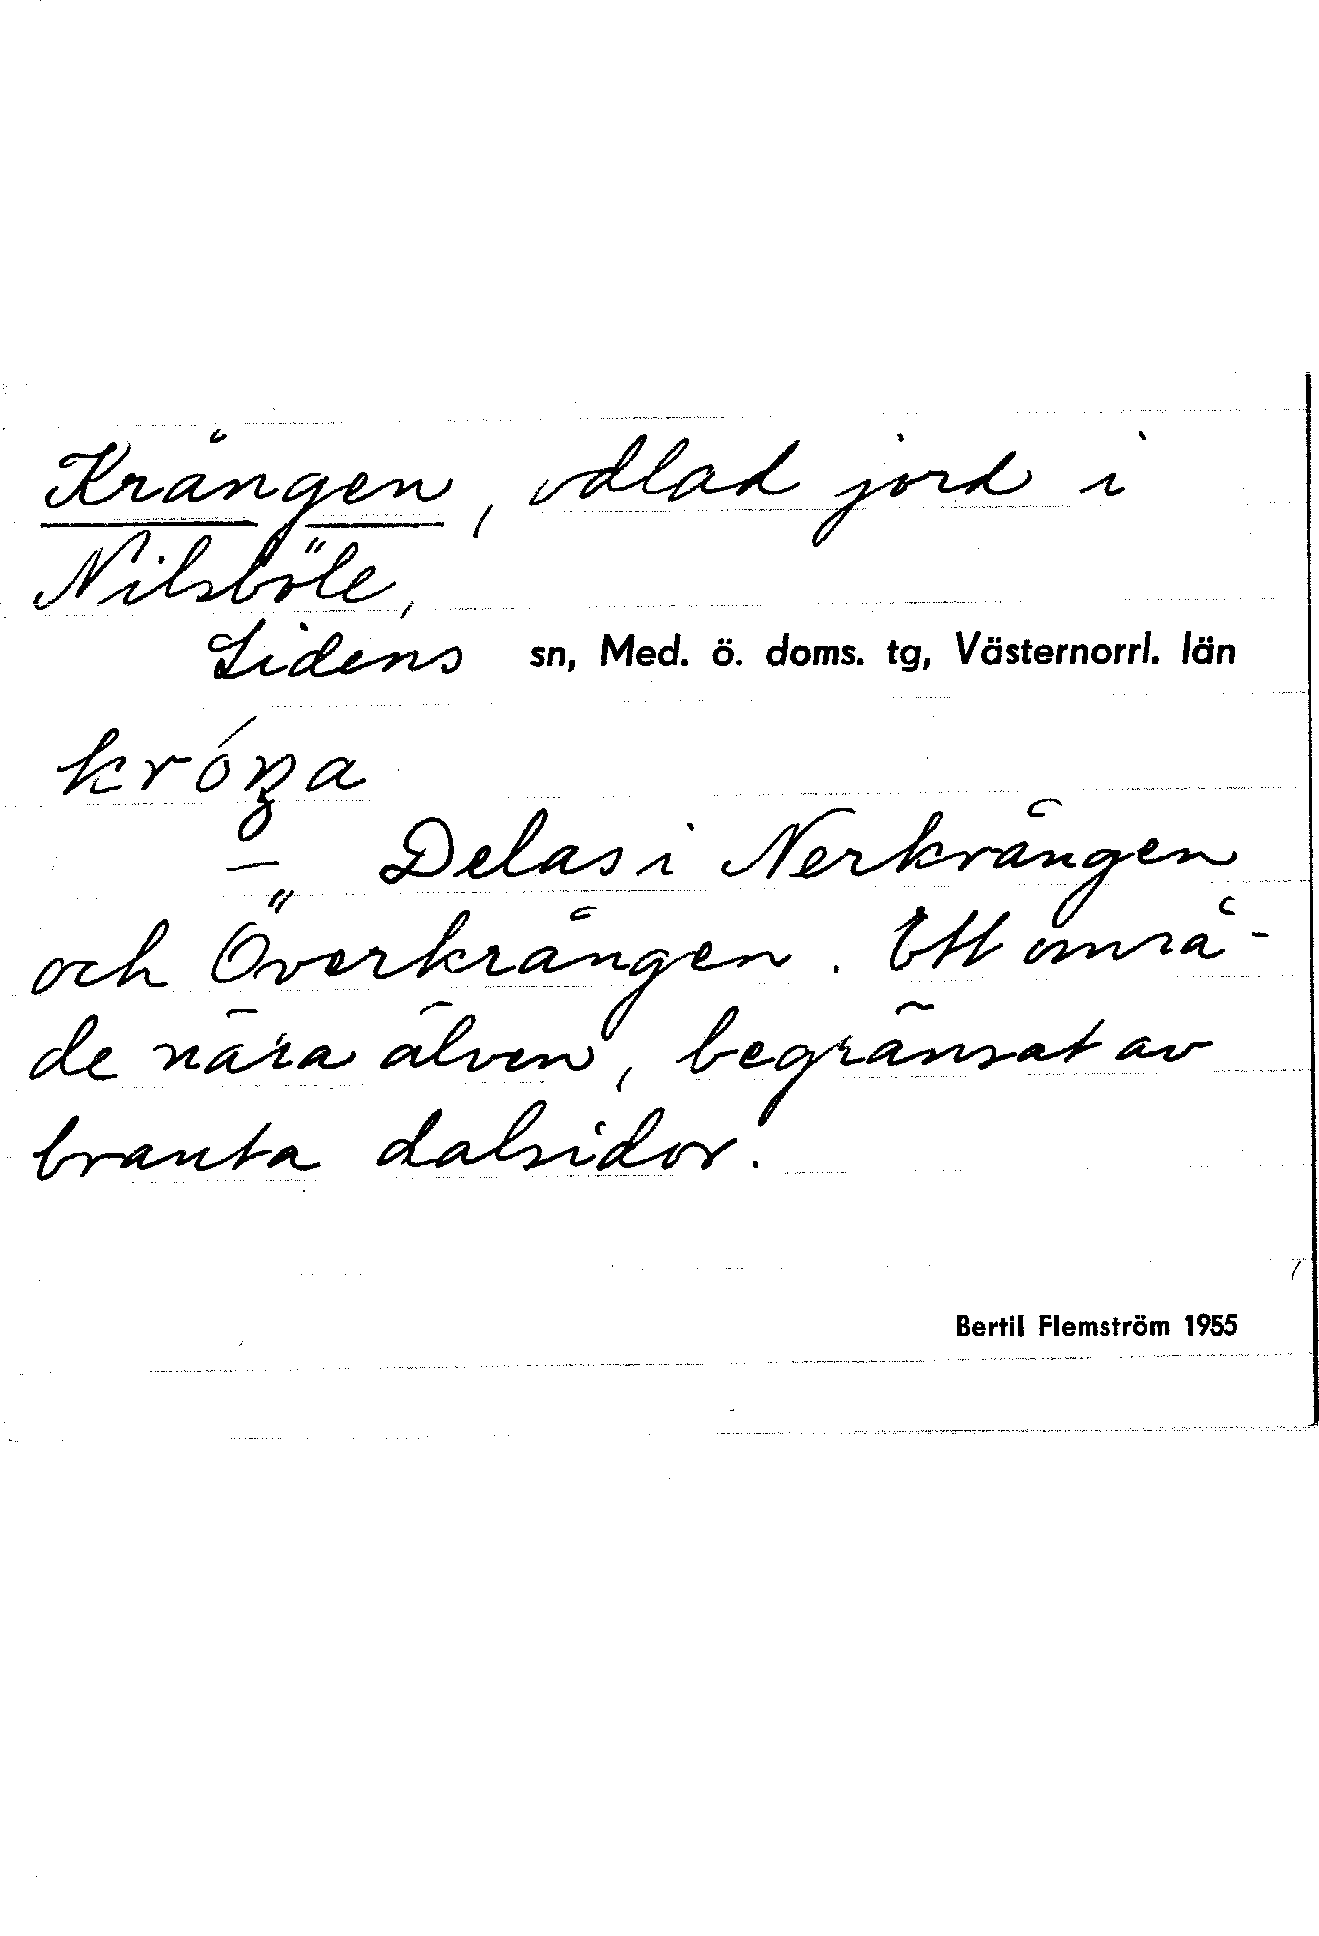 Krången, odlad jord i
Nilsböle,
Lidens sn, Med. ö. doms. tg, Västernorrl. län
króŋa
— Delas i Nerkrången
och Överkrången. Ett områ-
de nära älven, begränsat av
branta dalsidor.
Bertil Flemström 1955